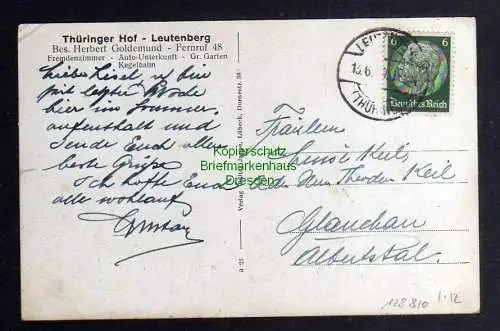 Thüringer Hof - Leutenberg
Bes. Herbert Goldemund - Fernruf 48
Fremdenzimmer - Auto-Unterkunft - Gr. Garten
Kegelbahn
Liebe Liesel, ich bin
seit letzter Woche
hier im Sommer-
aufenthalt und
sende Euch allen
beste Grüße
Ich hoffe Euch
alle wohlauf
Gustav
Verlag Lübeck,
a 23
6 6
Deutsches Reich
Fräulein
Keil,
Theodor Keil
Glauchau
Albertstal.
Kopierschutz
Briefmarkenhaus
Dresden
128 810 1.12